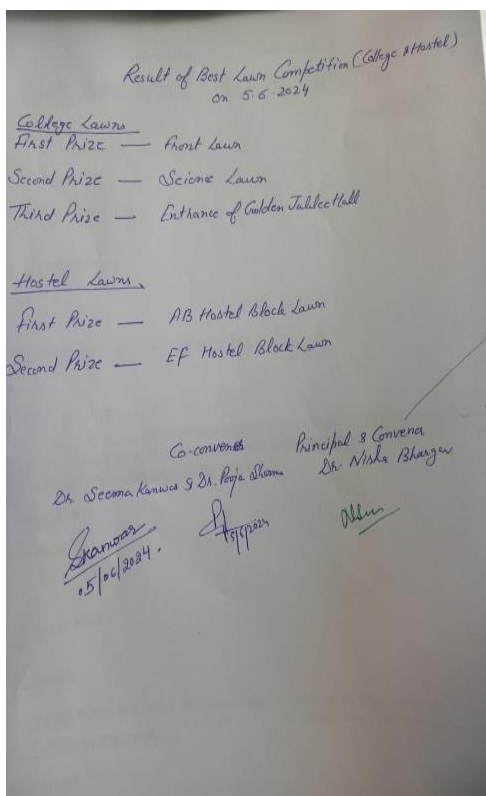 Result of Best Lawn Competition (College & Hostel)
on 5.6.2024
College Lawns
First Prize — Front Lawn
Second Prize — Science Lawn
Third Prize — Entrance of Golden Jubilee Hall
Hostel Lawns
First Prize — AB Hostel Block Lawn
Second Prize — EF Hostel Block Lawn
Co-conveners Principal & Convener
Dr. Seema Kanwar & Dr. Pooja Sharma Dr. Nisha Bhargav
Skanwar
05/06/2024.
5/6/2024